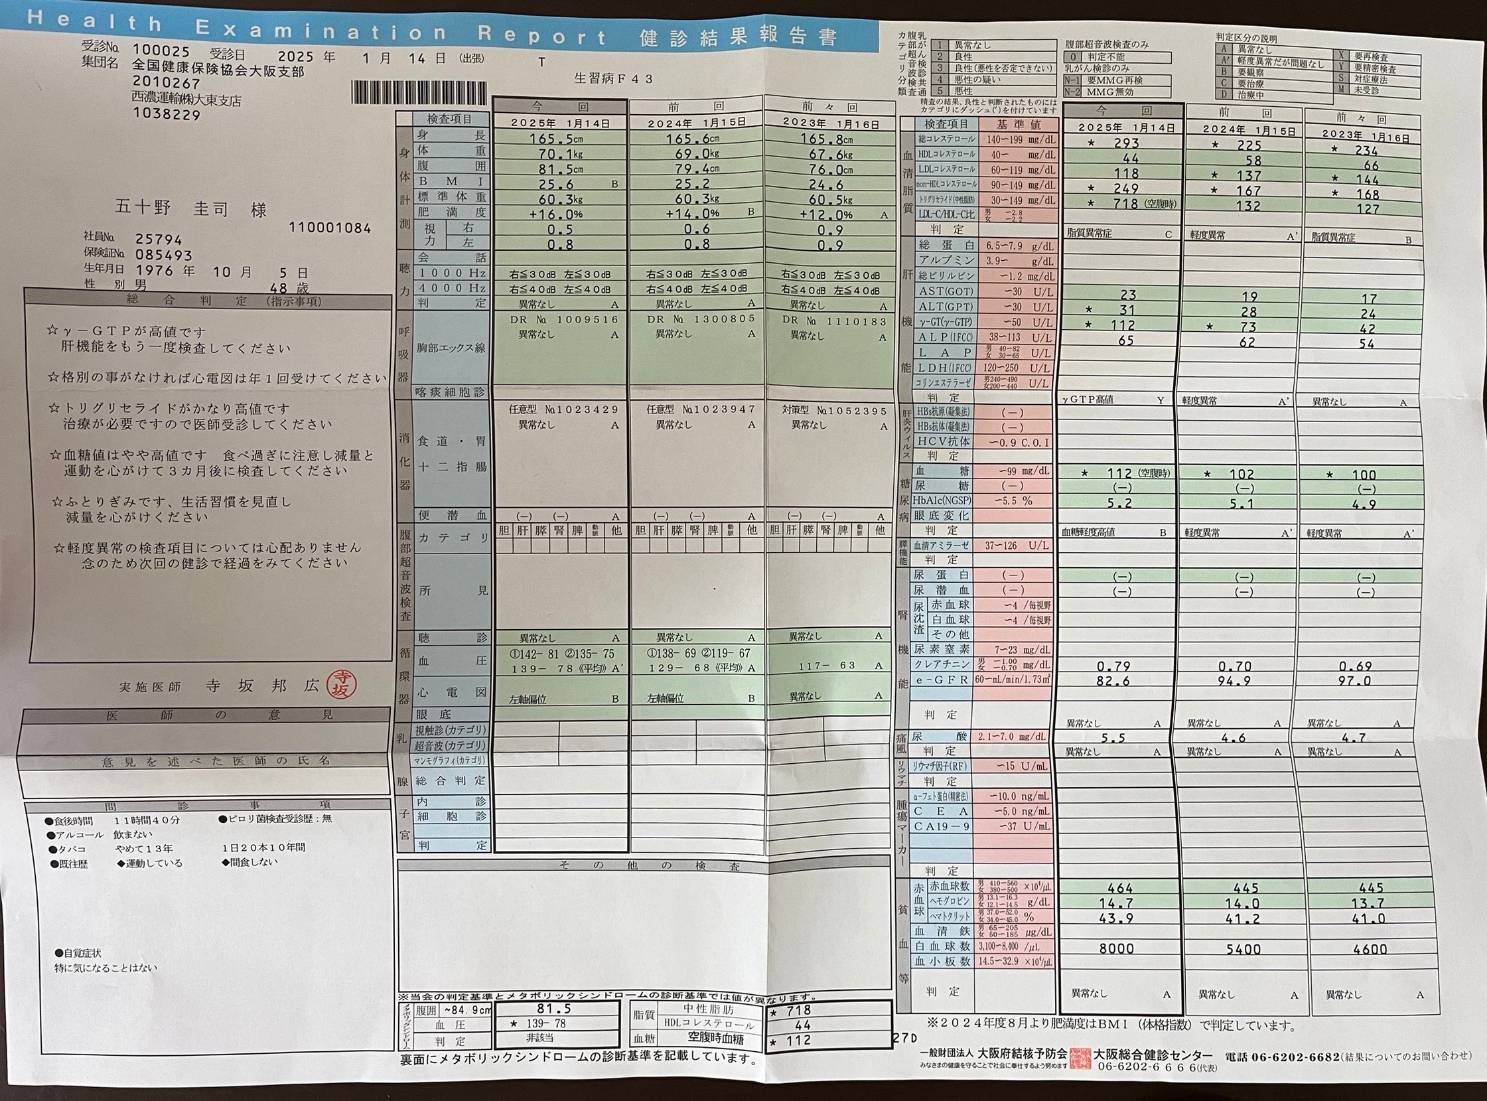 Health Examination Report 健診結果報告書
受診№ 100025 受診日 2025 年 1 月 14 日 (出張) T
集団名 全国健康保険協会大阪支部
2010267
西濃運輸㈱大東支店
1038229
生習病F43
五十野 圭司 様
110001084
社員№ 25794
保険証№ 085493
生年月日 1976 年 10 月 5 日
性別 男 48 歳
総合判定 (指示事項)
☆γ-GTPが高値です
肝機能をもう一度検査してください
☆格別の事がなければ心電図は年1回受けてください
☆トリグリセライドがかなり高値です
治療が必要ですので医師受診してください
☆血糖値はやや高値です 食べ過ぎに注意し減量と
運動を心がけて3カ月後に検査してください
☆ふとりぎみです、生活習慣を見直し
減量を心がけください
☆軽度異常の検査項目については心配ありません
念のため次回の健診で経過をみてください
実施医師 寺坂 邦広 寺坂
医師の意見
意見を述べた医師の氏名
問診事項
●食後時間 11時間40分 ●ピロリ菌検査受診歴:無
●アルコール 飲まない
●タバコ やめて13年 1日20本10年間
●既往歴 ◆運動している ◆間食しない
●自覚症状
特に気になることはない
今回 前回 前々回
検査項目 2025年 1月14日 2024年 1月15日 2023年 1月16日
身体計測
身長 165.5cm 165.6cm 165.8cm
体重 70.1kg 69.0kg 67.6kg
腹囲 81.5cm 79.4cm 76.0cm
BMI 25.6 B 25.2 24.6
標準体重 60.3kg 60.3kg 60.5kg
肥満度 +16.0% +14.0% B +12.0% A
視力 右 0.5 0.6 0.9
左 0.8 0.8 0.9
聴力
会話
1000Hz 右≦30dB 左≦30dB 右≦30dB 左≦30dB 右≦30dB 左≦30dB
4000Hz 右≦40dB 左≦40dB 右≦40dB 左≦40dB 右≦40dB 左≦40dB
判定 異常なし A 異常なし A 異常なし A
呼吸器
胸部エックス線 DR № 1009516 DR № 1300805 DR № 1110183
異常なし A 異常なし A 異常なし A
喀痰細胞診
消化器
食道・胃 十二指腸 任意型 №1023429 任意型 №1023947 対策型 №1052395
異常なし A 異常なし A 異常なし A
便潜血 (-) (-) A (-) (-) A (-) (-) A
腹部超音波検査
カテゴリ 胆 肝 膵 腎 脾 動脈 他 胆 肝 膵 腎 脾 動脈 他 胆 肝 膵 腎 脾 動脈 他
所見
循環器
聴診 異常なし A 異常なし A 異常なし A
血圧 ①142- 81 ②135- 75 ①138- 69 ②119- 67
139- 78 《平均》 A' 129- 68 《平均》 A 117- 63 A
心電図 左軸偏位 B 左軸偏位 B 異常なし A
眼底
乳腺
視触診(カテゴリ)
超音波(カテゴリ)
マンモグラフィ(カテゴリ)
総合判定
子宮
内診
細胞診
判定
その他の検査
※当会の判定基準とメタボリックシンドロームの診断基準では値が異なります。
メタボリックシンドローム
腹囲 ~84.9cm 81.5 脂質 中性脂肪 * 718
血圧 * 139- 78 HDLコレステロール 44
判定 非該当 血糖 空腹時血糖 * 112
裏面にメタボリックシンドロームの診断基準を記載しています。
27D
1 異常なし
2 良性
3 良性(悪性を否定できない)
4 悪性の疑い
5 悪性
精査の結果、良性と判断されたものには
カテゴリにダッシュ(')を付けています
腹部超音波検査のみ
0 判定不能
乳がん検診のみ
N-1 要MMG再検
N-2 MMG無効
判定区分の説明
A 異常なし X 要再検査
A' 軽度異常だが問題なし Y 要精密検査
B 要観察 S 対症療法
C 要治療 M 未受診
D 治療中
今回 前回 前々回
検査項目 基準値 2025年 1月14日 2024年 1月15日 2023年 1月16日
血清脂質
総コレステロール 140~199 mg/dL * 293 * 225 * 234
HDLコレステロール 40~ mg/dL 44 58 66
LDLコレステロール 60~119 mg/dL 118 * 137 * 144
non-HDLコレステロール 90~149 mg/dL * 249 * 167 * 168
トリグリセライド(中性脂肪) 30~149 mg/dL * 718 (空腹時) 132 127
LDL-C/HDL-C比 男 ~2.8 女 ~2.2
判定 脂質異常症 C 軽度異常 A' 脂質異常症 B
肝機能
総蛋白 6.5~7.9 g/dL
アルブミン 3.9~ g/dL
総ビリルビン ~1.2 mg/dL
AST(GOT) ~30 U/L 23 19 17
ALT(GPT) ~30 U/L * 31 28 24
γ-GT(γ-GTP) ~50 U/L * 112 * 73 42
ALP(IFCC) 38~113 U/L 65 62 54
LAP 男 40~82 女 30~65 U/L
LDH(IFCC) 120~250 U/L
コリンエステラーゼ 男 240~490 女 200~440 U/L
判定 γGTP高値 Y 軽度異常 A' 異常なし A
肝炎ウイルス
HBs抗原(凝集法) (-)
HBs抗体(凝集法) (-)
HCV抗体 ~0.9 C.O.I
判定
糖尿病
血糖 ~99 mg/dL * 112 (空腹時) * 102 * 100
尿糖 (-) (-) (-)
HbA1c(NGSP) ~5.5 % 5.2 5.1 4.9
眼底変化
判定 血糖軽度高値 B 軽度異常 A' 軽度異常 A'
膵機能
血清アミラーゼ 37~126 U/L
判定
腎機能
尿蛋白 (-) (-) (-) (-)
尿潜血 (-) (-) (-) (-)
尿沈渣 赤血球 ~4 /毎視野
白血球 ~4 /毎視野
その他
尿素窒素 7~23 mg/dL
クレアチニン 男 ~1.00 女 ~0.70 mg/dL 0.79 0.70 0.69
e-GFR 60~mL/min/1.73㎡ 82.6 94.9 97.0
判定 異常なし A 異常なし A 異常なし A
痛風
尿酸 2.1~7.0 mg/dL 5.5 4.6 4.7
判定 異常なし A 異常なし A 異常なし A
リウマチ
リウマチ因子(RF) ~15 U/mL
判定
腫瘍マーカー
α-フェト蛋白(精密法) ~10.0 ng/mL
CEA ~5.0 ng/mL
CA19-9 ~37 U/mL
判定
貧血等
赤血球 赤血球数 男 410~560 女 380~500 ×10⁴/μL 464 445 445
ヘモグロビン 男 13.1~16.3 女 12.1~14.5 g/dL 14.7 14.0 13.7
ヘマトクリット 男 37.0~52.0 女 34.0~45.0 % 43.9 41.2 41.0
血清鉄 男 65~205 女 50~185 μg/dL
白血球数 3,100~8,400 /μL 8000 5400 4600
血小板数 14.5~32.9 ×10⁴/μL
判定 異常なし A 異常なし A 異常なし A
※2024年度8月より肥満度はBMI(体格指数)で判定しています。
一般財団法人 大阪府結核予防会 大阪総合健診センター 電話 06-6202-6682(結果についてのお問い合わせ)
みなさまの健康を守ることで社会に奉仕するよう努めます 06-6202-6666(代表)